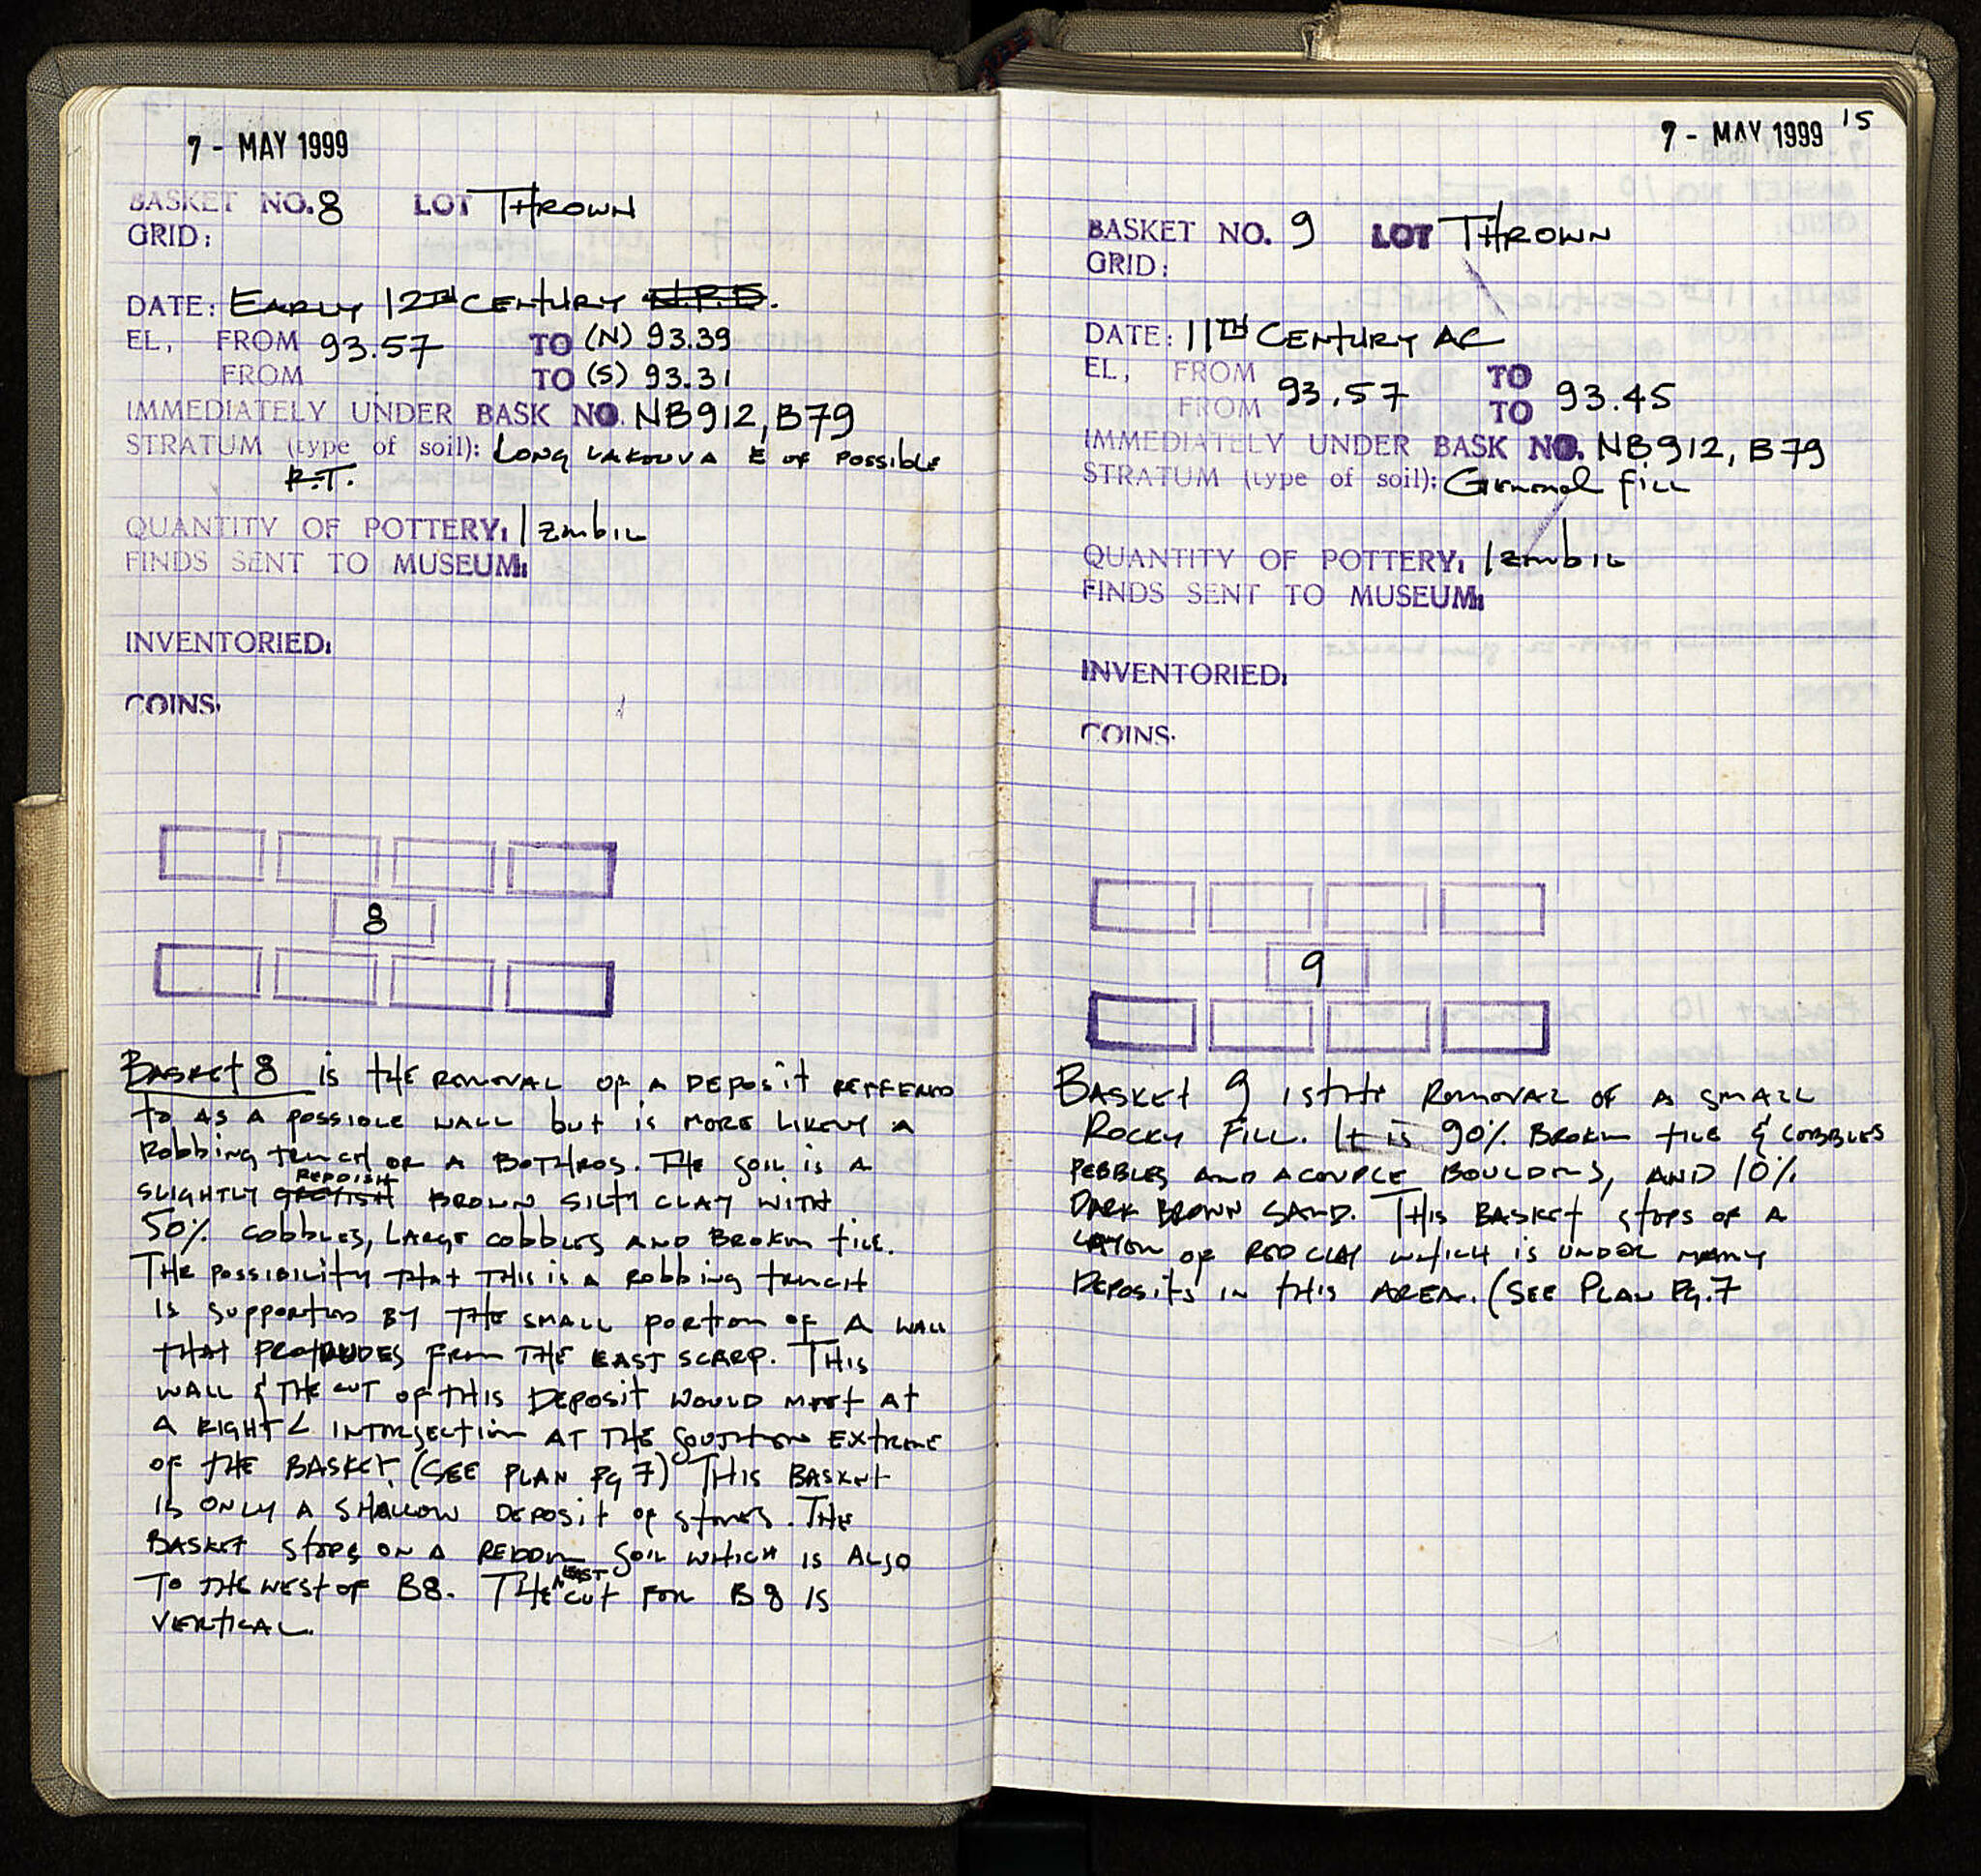 7 - MAY 1999
BASKET NO. 8 LOT THROWN
GRID:
DATE: EARLY 12TH CENTURY N.P.D.
EL, FROM 93.57 TO (N) 93.39
FROM TO (S) 93.31
IMMEDIATELY UNDER BASK NO. NB912, B79
STRATUM (type of soil): LONG LAKOUVA E OF POSSIBLE
R.T.
QUANTITY OF POTTERY: 1 zmbil
FINDS SENT TO MUSEUM:
INVENTORIED:
COINS.
8
BASKET 8 is THE REMOVAL OF A DEPOSIT REFFERED
to AS A POSSIBLE WALL but is MORE LIKELY A
Robbing trench or A BOTHROS. THE SOIL is A
REDDISH
SLIGHTLY GREYISH BROWN SILTY CLAY WITH
50% COBBLES, LARGE COBBLES AND BROKEN TILE.
THE POSSIBILITY THAT THIS IS A ROBBING TRENCH
IS SUPPORTED BY THE SMALL PORTION OF A WALL
THAT PROTRUDES FROM THE EAST SCARP. THIS
WALL & THE CUT OF THIS DEPOSIT WOULD MEET AT
A RIGHT ∠ INTERSECTION AT THE SOUTHERN EXTREME
OF THE BASKET. (SEE PLAN Pg 7) THIS BASKET
IS ONLY A SHALLOW DEPOSIT OF STONES. THE
BASKET STOPS ON A REDDER SOIL WHICH IS ALSO
EAST
TO THE WEST OF B8. THE CUT FOR B8 IS
VERTICAL.
7 - MAY 1999 15
BASKET NO. 9 LOT THROWN
GRID:
DATE: 11TH CENTURY AC
EL, FROM 93.57 TO 93.45
FROM TO
IMMEDIATELY UNDER BASK NO. NB912, B79
STRATUM (type of soil): General fill
QUANTITY OF POTTERY: 1 zmbil
FINDS SENT TO MUSEUM:
INVENTORIED:
COINS.
9
BASKET 9 is the REMOVAL OF A SMALL
ROCKY FILL. It is 90% BROKEN TILE & COBBLES
PEBBLES AND A COUPLE BOULDERS, AND 10%
DARK BROWN SAND. THIS BASKET STOPS OF A
LAYER OF RED CLAY WHICH IS UNDER MANY
DEPOSITS IN THIS AREA. (SEE PLAN Pg. 7